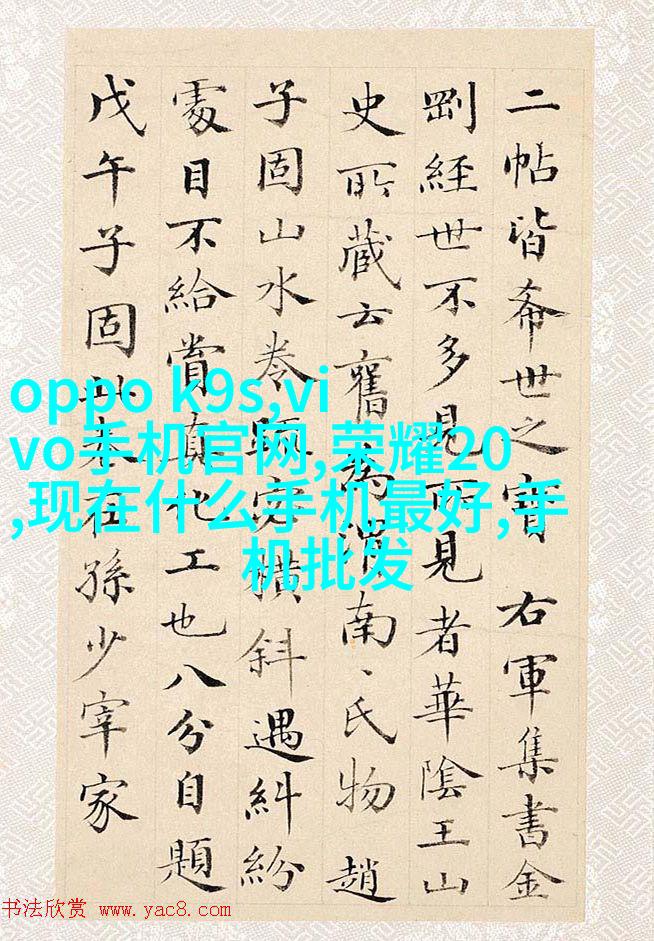 二帖皆希世之寳 右軍集書金
剛經世不多見而見者華陰王山
史所藏云舊為渭南、氏物 趙
子固山水卷橫斜遇糾紛
處目不給賞真化工也八分自題
戊午子固此卷在孫少宰家
oppo k9s,vi
vo手机官网,荣耀20
,现在什么手机最好,手
机批发
书法欣赏 www.yac8.com